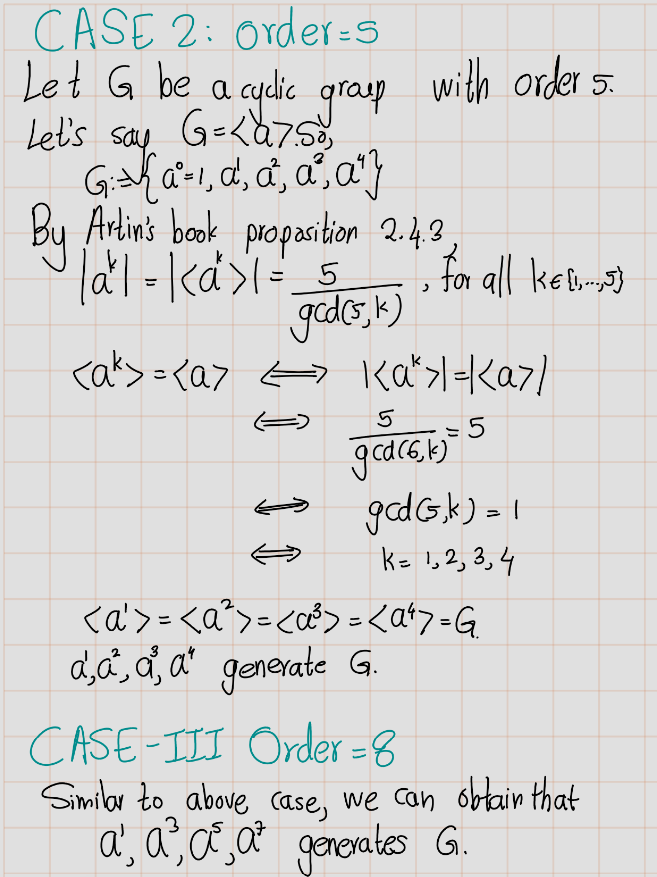 CASE 2: order=5
Let G be a cyclic group with order 5.
Let's say G=<a>. So,
G:={a⁰=1, a¹, a², a³, a⁴}
By Artin's book proposition 2.4.3,
|aᵏ| = |<aᵏ>| = 5/gcd(5,k) , for all k∈{1,...,5}
<aᵏ> = <a> ⟺ |<aᵏ>|=|<a>|
⟺ 5/gcd(6,k) = 5
⟺ gcd(5,k) = 1
⟺ k= 1, 2, 3, 4
<a¹> = <a²> = <a³> = <a⁴> = G.
a¹, a², a³, a⁴ generate G.
CASE-III Order=8
Similar to above case, we can obtain that
a¹, a³, a⁵, a⁷ generates G.